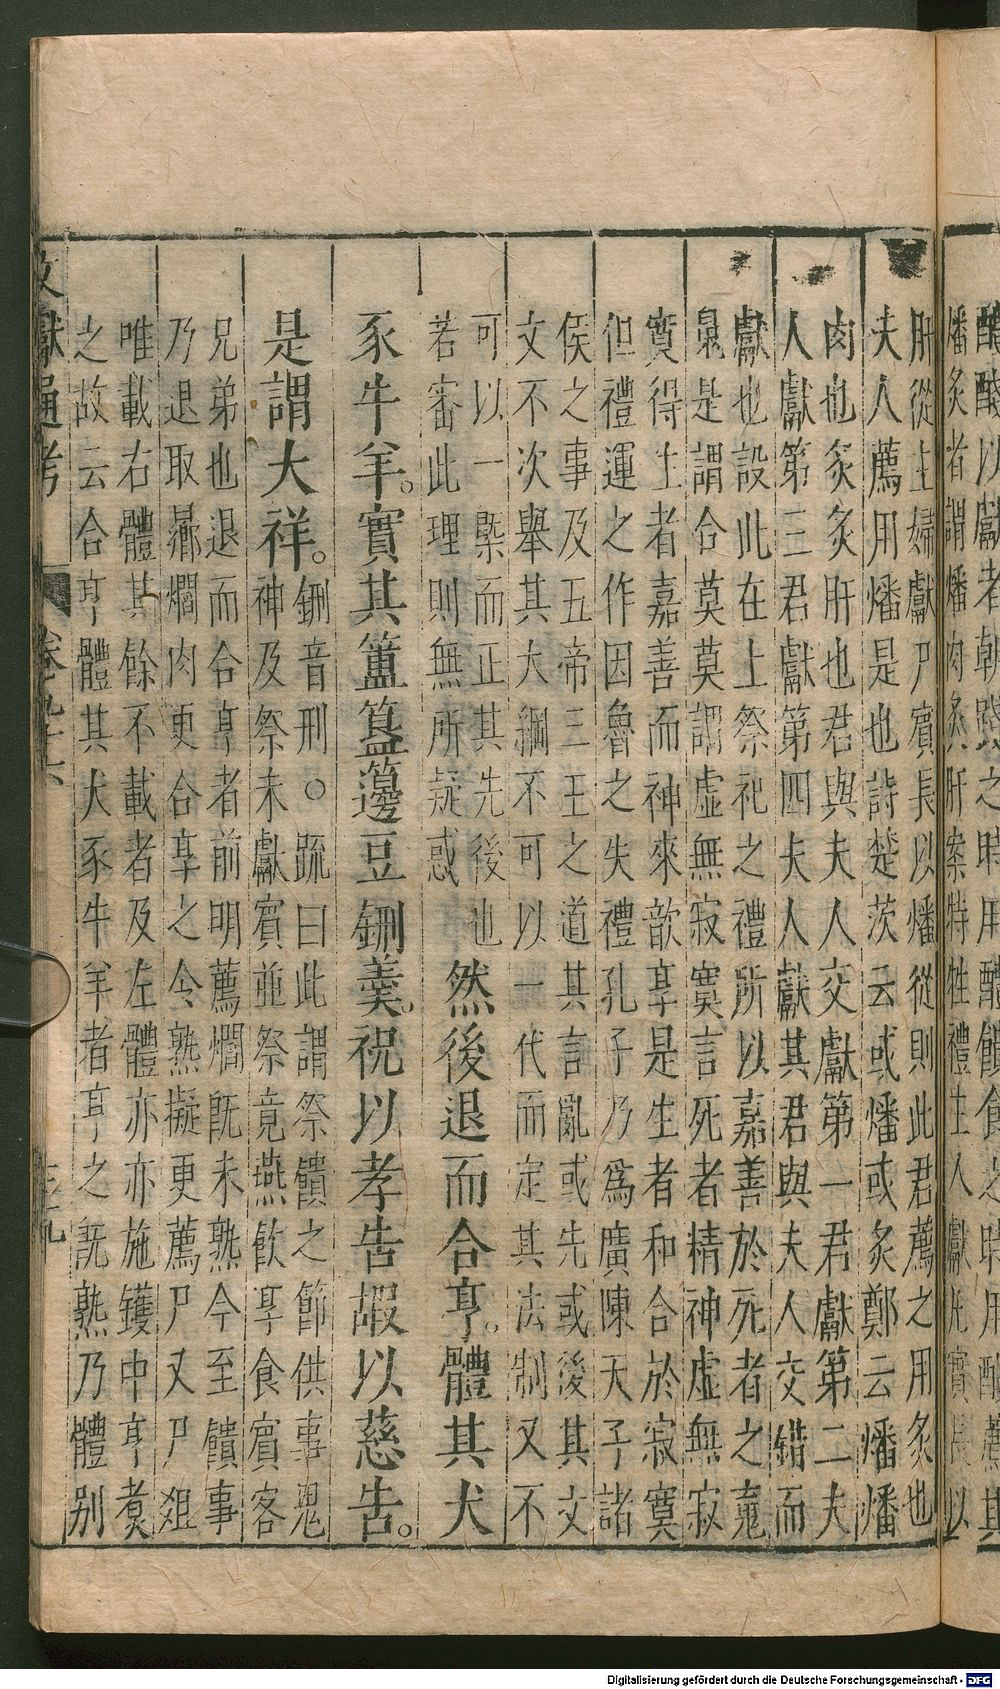 醆以獻者朝踐之時用醴饋食之時用醆薦其
燔炙者謂燔肉炙肝案特牲禮主人獻尸賓長以
肝從主婦獻尸賓長以燔從則此君薦之用炙也
夫人薦用燔是也詩楚茨云或燔或炙鄭云燔燔
肉也炙炙肝也君與夫人交獻第一君獻第二夫
人獻第三君獻第四夫人獻其君與夫人交錯而
獻也設此在上祭祀之禮所以嘉善於死者之䰟
䰟是謂合莫莫謂虛無寂寞言死者精神虛無寂
寞得生者嘉善而神來歆享是生者和合於寂寞
但禮運之作因魯之失禮孔子乃爲廣陳天子諸
侯之事及五帝三王之道其言亂或先或後其文
文不次舉其大綱不可以一代而定其法制又不
可以一槩而正其先後也
若審此理則無所疑惑
然後退而合亨。體其犬
豕牛羊。實其簠簋籩豆鉶羹。祝以孝告嘏以慈告。
是謂大祥。
鉶音刑○疏曰此謂祭饋之節供事鬼
神及祭未獻賓並祭竟燕飲享食賓客
兄弟也退而合亨者前明薦爓旣未熟今至饋事
乃退取曏爓肉更合亨之令熟擬更薦尸又尸爼
唯載右體其餘不載者及左體亦亦施鑊中亨煮
之故云合亨體其犬豕牛羊者亨之旣熟乃體別
文獻通考 卷九十六